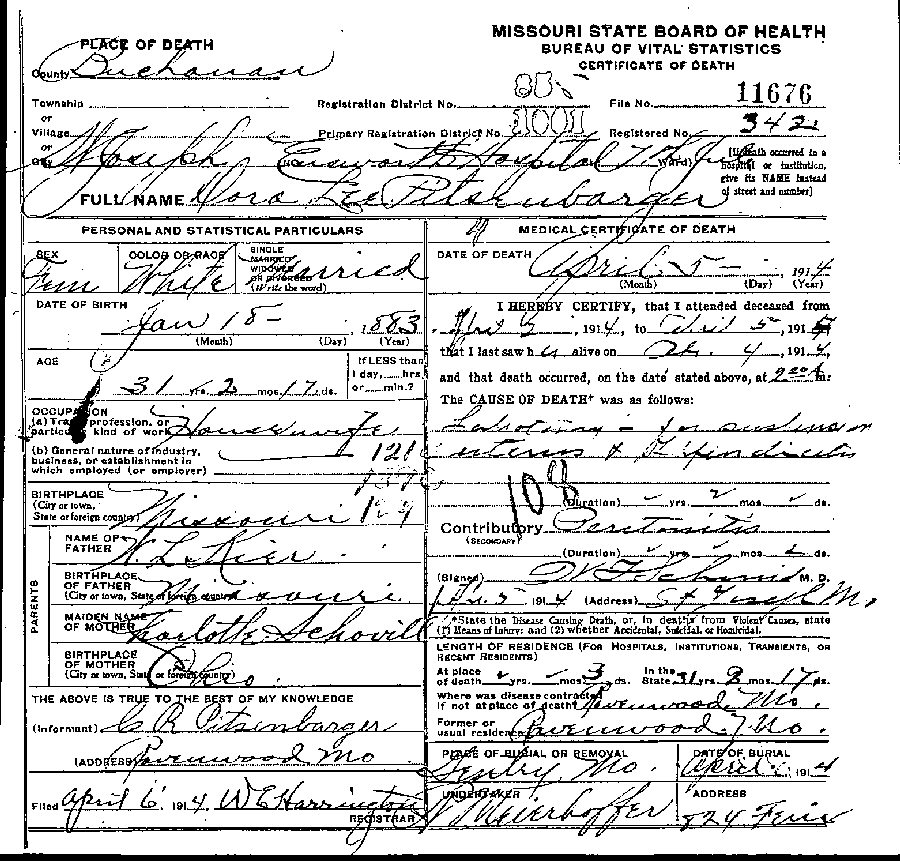 MISSOURI STATE BOARD OF HEALTH
BUREAU OF VITAL STATISTICS
CERTIFICATE OF DEATH
PLACE OF DEATH
County Buchanan
Township
or
Village
or
City St Joseph
Registration District No. 85
Primary Registration District No. 1001
File No. 11676
Registered No. 342
(No. Ensworth Hospital Ward)
[If death occurred in a hospital or institution, give its NAME instead of street and number]
FULL NAME Dora Lee Pitsenbarger
PERSONAL AND STATISTICAL PARTICULARS
SEX Fem
COLOR OR RACE White
SINGLE MARRIED WIDOWED OR DIVORCED (Write the word) Married
DATE OF BIRTH
Jan 18 - 1883
(Month) (Day) (Year)
AGE
31 yrs. 2 mos. 17 ds.
If LESS than 1 day, hrs. or min.?
OCCUPATION
(a) Trade, profession, or particular kind of work Housewife
(b) General nature of industry, business, or establishment in which employed (or employer)
121
129
BIRTHPLACE
(City or town, State or foreign country) Missouri
PARENTS
NAME OF FATHER Kier
BIRTHPLACE OF FATHER
(City or town, State or foreign country) Missouri
MAIDEN NAME OF MOTHER Charlotte Schovill
BIRTHPLACE OF MOTHER
(City or town, State or foreign country) Ohio.
THE ABOVE IS TRUE TO THE BEST OF MY KNOWLEDGE
(Informant) C R Pitsenbarger
(ADDRESS) Ravenwood Mo
Filed April 6 1914, W C Harrington
REGISTRAR
MEDICAL CERTIFICATE OF DEATH
DATE OF DEATH April 5 - 1914
(Month) (Day) (Year)
I HEREBY CERTIFY, that I attended deceased from
1914, to April 5, 191
that I last saw her alive on 4, 1914,
and that death occurred, on the date stated above, at m.
The CAUSE OF DEATH* was as follows:
Laparotomy - for suspension
uterus & Appendicitis
108
(Duration) yrs. 2 mos. ds.
Contributory Peritonitis
(SECONDARY)
(Duration) yrs. mos. 2 ds.
(Signed) Schmid M. D.
Apr. 5 1914 (Address) St Joseph Mo,
*State the Disease Causing Death, or, in deaths from Violent Causes, state (1) Means of Injury; and (2) whether Accidental, Suicidal, or Homicidal.
LENGTH OF RESIDENCE (FOR HOSPITALS, INSTITUTIONS, TRANSIENTS, OR RECENT RESIDENTS)
At place of death yrs. mos. 3 ds. In the State 31 yrs. 2 mos. 17 ds.
Where was disease contracted if not at place of death? Ravenwood Mo.
Former or usual residence Ravenwood Mo.
PLACE OF BURIAL OR REMOVAL
Mo.
DATE OF BURIAL
April 1914
UNDERTAKER
Meierhoffer
ADDRESS
824